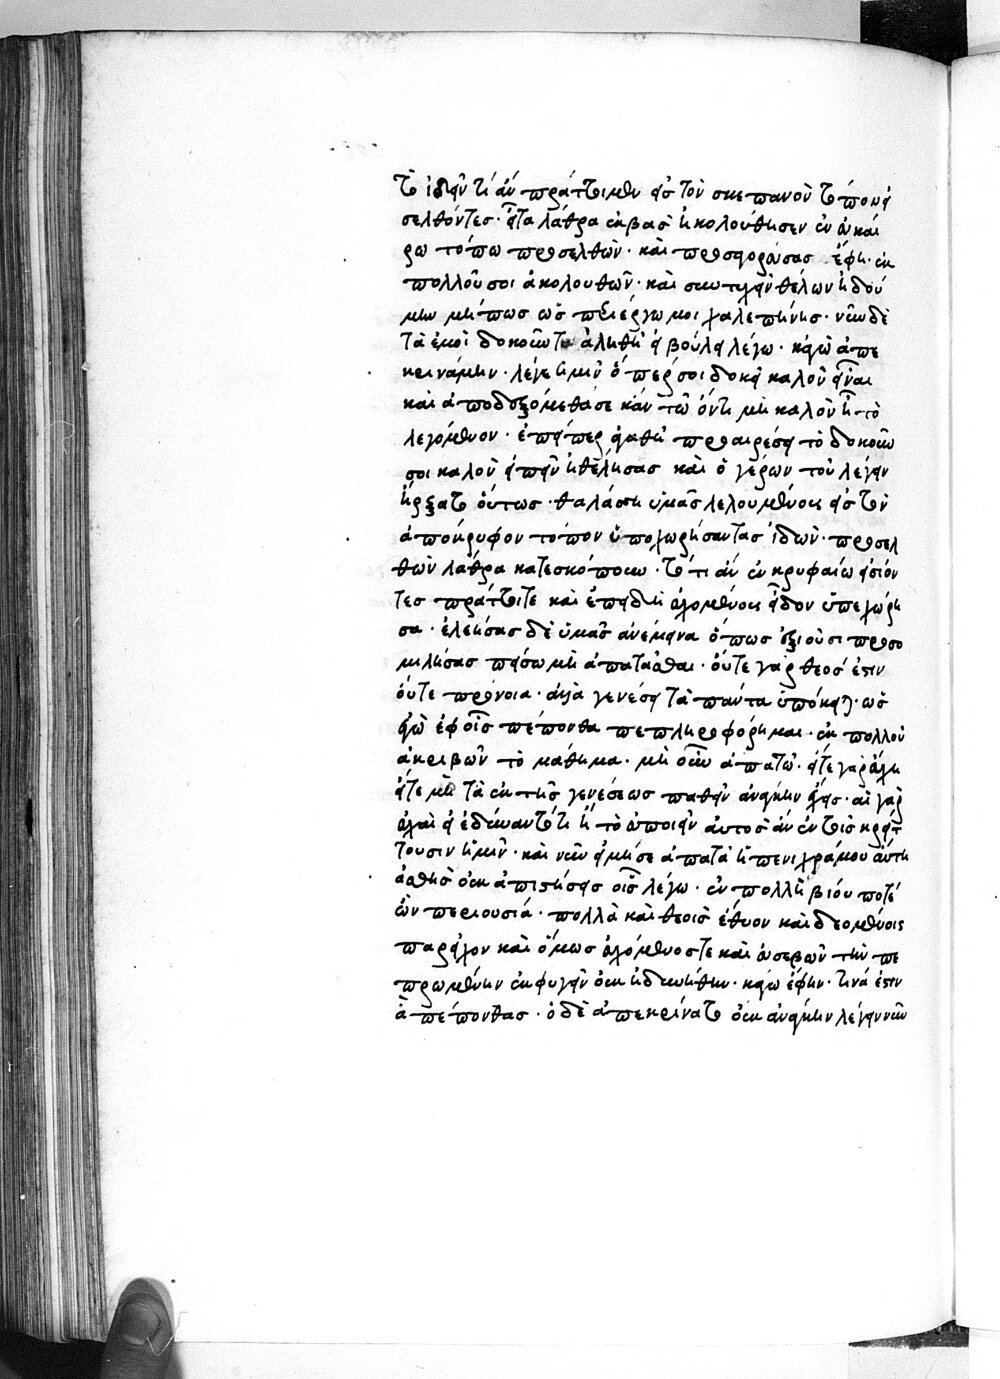 το ἰδεῖν τί ἂν πράττοιμεν εἰς τὸν σκεπανὸν τόπον εἰ
σελθόντες· εἶτα λάθρα ἐμβὰς ἠκολούθησεν ἐν εὐκαί
ρω τόπω προσελθὼν· καὶ προσαγορεύσας ἔφη· ἐκ
πολλοῦ σοι ἀκολουθῶν· καὶ συντυχεῖν θέλων ἠδού
μην μήπως ὡς περιέργω μοι χαλεπήνης· νῦν δὲ
τὰ ἐμοὶ δοκοῦντα ἀληθῆ εἰ βούλει λέγω· κἀγὼ ἀπε
κρινάμην· λέγε ἡμῖν ὅπερ σοι δοκεῖ καλὸν εἶναι
καὶ ἀποδεξόμεθά σε κἂν τῶ ὄντι μὴ καλὸν ἦ τὸ
λεγόμενον· ἐπείπερ ἀγαθῆ προαιρέσει τὸ δοκοῦν
σοι καλὸν εἰπεῖν ἠθέλησας καὶ ὁ γέρων τοῦ λέγειν
ἤρξατο οὕτως· θαλάσση ὑμᾶς λελουμένους εἰς τὸν
ἀπόκρυφον τόπον ὑποχωρήσαντας ἰδὼν· προσελ
θὼν λάθρα κατεσκόπουν· τὸ τί ἂν ἐν κρυφαίω εἰσιόν
τες πράττοιτε καὶ ἐπειδὴ εὐχομένους εἶδον ὑπεχώρη
σα· ἐλεήσας δὲ ὑμᾶς ἀνέμεινα ὅπως ἐξιοῦσι προσο
μιλήσας πείσω μὴ ἀπατᾶσθαι· οὔτε γὰρ θεός ἐστιν
οὔτε πρόνοια· ἀλλὰ γενέσει τὰ πάντα ὑπόκειται· ὡς
ἐγὼ ἐφ' οἷς πέπονθα πεπληροφόρημαι· ἐκ πολλοῦ
ἀκριβῶν τὸ μάθημα· μὴ οὖν ἀπατῶ· εἴτε γὰρ εὔχη
εἴτε μὴ τὰ ἐκ τῆς γενέσεως παθεῖν ἀνάγκην ἔχεις· αἱ γὰρ
εὐχαὶ εἰ ἐδύναντό τι ἢ τὸ εὐποιεῖν αὐτὸς ἂν ἐν τοῖς κρείτ
τουσιν ἤμην· καὶ νῦν εἰ μή σε ἀπατᾶ ἡ πενιχρά μου αὕτη
ἐσθὴς οὐκ ἀπιστήσεις οἷς λέγω· ἐν πολλῆ βίου ποτέ
ὢν περιουσία· πολλὰ καὶ θεοῖς ἔθυον καὶ δεομένοις
παρεῖχον καὶ ὅμως εὐχόμενός τε καὶ εὐσεβῶν τὴν πε
πρωμένην ἐκφυγεῖν οὐκ ἠδυνήθην· κἀγὼ ἔφην· τίνα ἐστὶν
ἃ πέπονθας· ὁ δὲ ἀπεκρίνατο οὐκ ἀνάγκην λέγειν νῦν